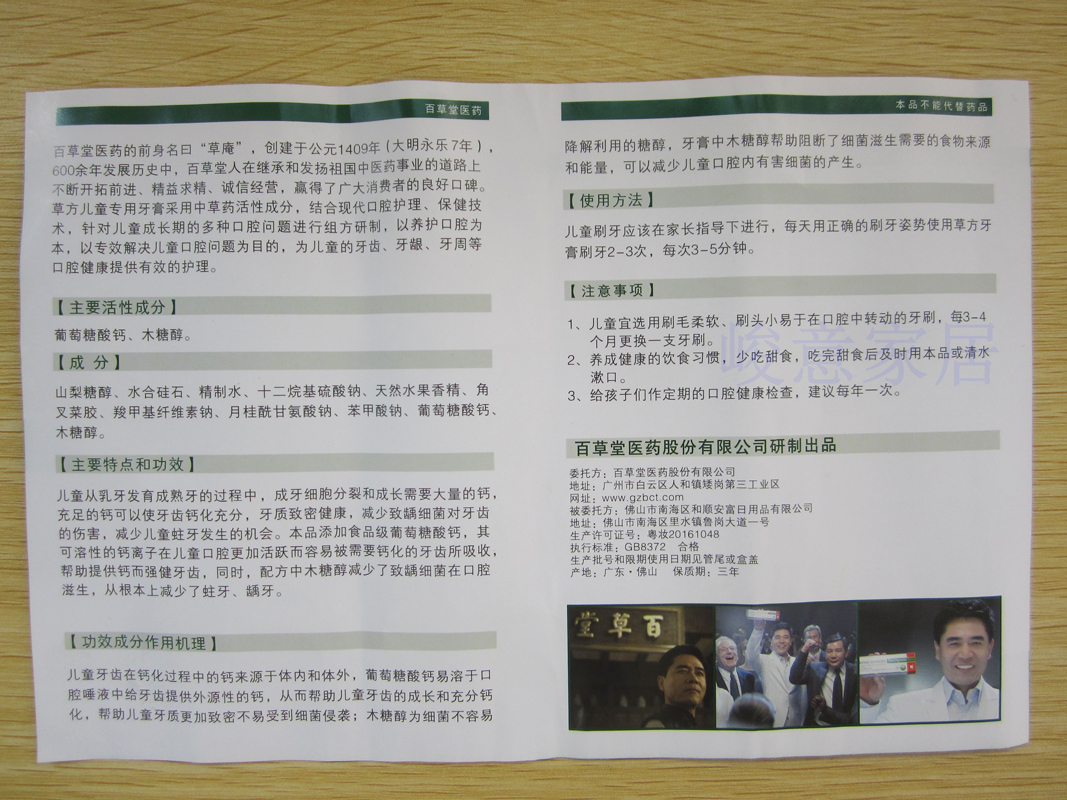 百草堂医药
百草堂医药的前身名曰“草庵”，创建于公元1409年（大明永乐7年），
600余年发展历史中，百草堂人在继承和发扬祖国中医药事业的道路上
不断开拓前进、精益求精、诚信经营，赢得了广大消费者的良好口碑。
草方儿童专用牙膏采用中草药活性成分，结合现代口腔护理、保健技
术，针对儿童成长期的多种口腔问题进行组方研制，以养护口腔为
本，以专效解决儿童口腔问题为目的，为儿童的牙齿、牙龈、牙周等
口腔健康提供有效的护理。
【主要活性成分】
葡萄糖酸钙、木糖醇。
【成 分】
山梨糖醇、水合硅石、精制水、十二烷基硫酸钠、天然水果香精、角
叉菜胶、羧甲基纤维素钠、月桂酰甘氨酸钠、苯甲酸钠、葡萄糖酸钙、
木糖醇。
【主要特点和功效】
儿童从乳牙发育成熟牙的过程中，成牙细胞分裂和成长需要大量的钙，
充足的钙可以使牙齿钙化充分，牙质致密健康，减少致龋细菌对牙齿
的伤害，减少儿童蛀牙发生的机会。本品添加食品级葡萄糖酸钙，其
可溶性的钙离子在儿童口腔更加活跃而容易被需要钙化的牙齿所吸收，
帮助提供钙而强健牙齿，同时，配方中木糖醇减少了致龋细菌在口腔
滋生，从根本上减少了蛀牙、龋牙。
【功效成分作用机理】
儿童牙齿在钙化过程中的钙来源于体内和体外，葡萄糖酸钙易溶于口
腔唾液中给牙齿提供外源性的钙，从而帮助儿童牙齿的成长和充分钙
化，帮助儿童牙质更加致密不易受到细菌侵袭；木糖醇为细菌不容易
本品不能代替药品
降解利用的糖醇，牙膏中木糖醇帮助阻断了细菌滋生需要的食物来源
和能量，可以减少儿童口腔内有害细菌的产生。
【使用方法】
儿童刷牙应该在家长指导下进行，每天用正确的刷牙姿势使用草方牙
膏刷牙2-3次，每次3-5分钟。
【注意事项】
1、儿童宜选用刷毛柔软、刷头小易于在口腔中转动的牙刷，每3-4
个月更换一支牙刷。
2、养成健康的饮食习惯，少吃甜食，吃完甜食后及时用本品或清水
漱口。
3、给孩子们作定期的口腔健康检查，建议每年一次。
峻意家居
百草堂医药股份有限公司研制出品
委托方：百草堂医药股份有限公司
地址：广州市白云区人和镇矮岗第三工业区
网址：www.gzbct.com
被委托方：佛山市南海区和顺安富日用品有限公司
地址：佛山市南海区里水镇鲁岗大道一号
生产许可证号：粤妆20161048
执行标准：GB8372 合格
生产批号和限期使用日期见管尾或盒盖
产地：广东·佛山 保质期：三年
堂草百